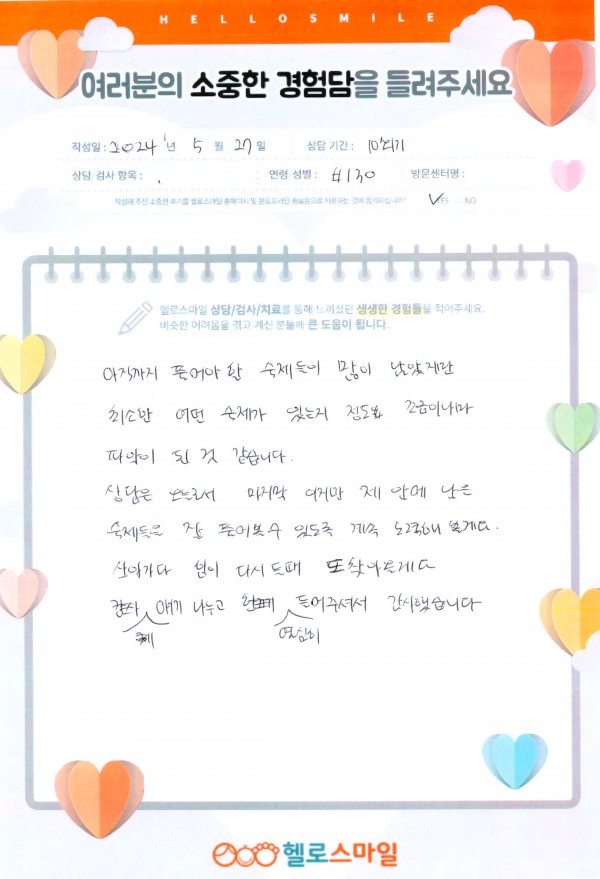 HELLOSMILE
여러분의 소중한 경험담을 들려주세요
작성일 : 2024 년 5 월 27 일 상담 기간 : 10회기
상담/검사 항목 : . 연령/성별 : 방문센터명 :
작성해 주신 소중한 후기를 헬로스마일 홈페이지 및 온오프라인 홍보용으로 사용하는 것에 동의하십니까? YES NO
헬로스마일 상담/검사/치료를 통해 느끼셨던 생생한 경험들을 적어주세요.
비슷한 어려움을 겪고 계신 분들께 큰 도움이 됩니다.
아직까지 풀어야 할 숙제들이 많이 남았지만
최소한 어떤 숙제가 있는지 정도는 조금이나마
파악이 된 것 같습니다.
상담은 오늘로서 마지막 이지만 제 안에 남은
숙제들을 잘 풀어볼 수 있도록 계속 노력해 볼게요.
살아가다 벽이 다시 들때 또 찾아올게요
얘기 나누고 들어주셔서 감사했습니다
열심히
헬로스마일